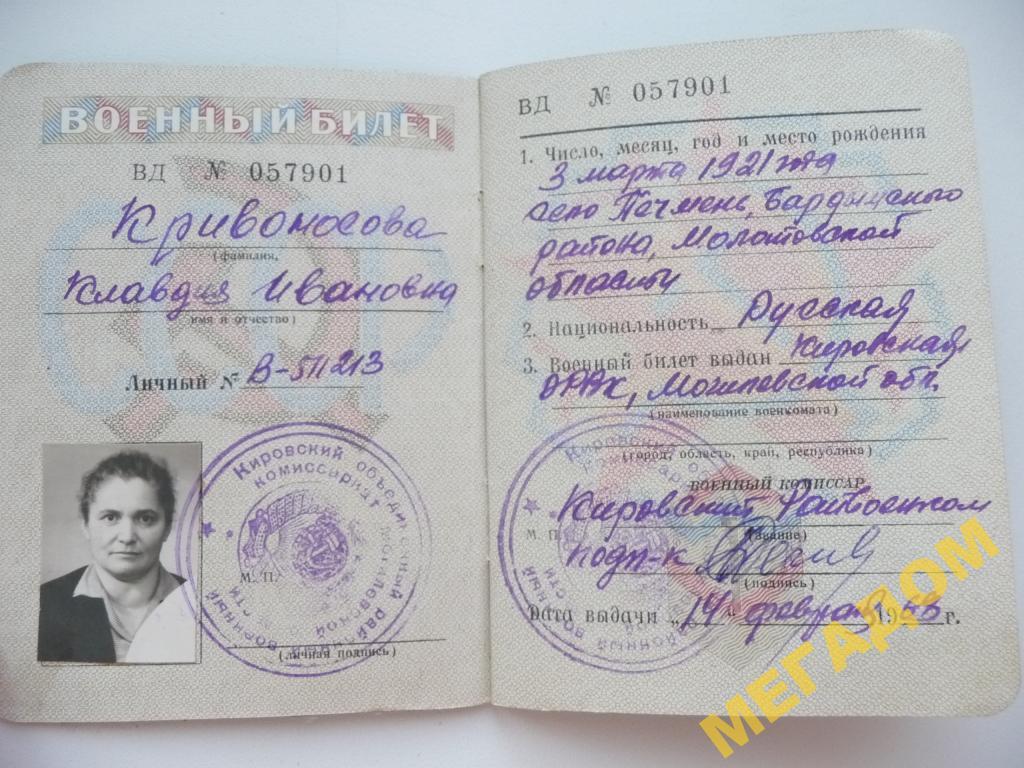 ВОЕННЫЙ БИЛЕТ
ВД № 057901
Кривоносова
(фамилия,
Клавдия Ивановна
имя и отчество)
Личный № В-511213
Кировский объединенный районный военный
комиссариат Могилевской области
М. П.
(личная подпись)
ВД № 057901
1. Число, месяц, год и место рождения
3 марта 1921 года
село Печмень, Бардымского
района, Молотовской
области
2. Национальность Русская
3. Военный билет выдан Кировским
ОРВК, Могилевской обл.
(наименование военкомата)
(город, область, край, республика)
ВОЕННЫЙ КОМИССАР
Кировский Райвоенком
М. П.
(звание)
подп-к
(подпись)
Дата выдачи „14" февраля 19 г.
МЕГАДОМ